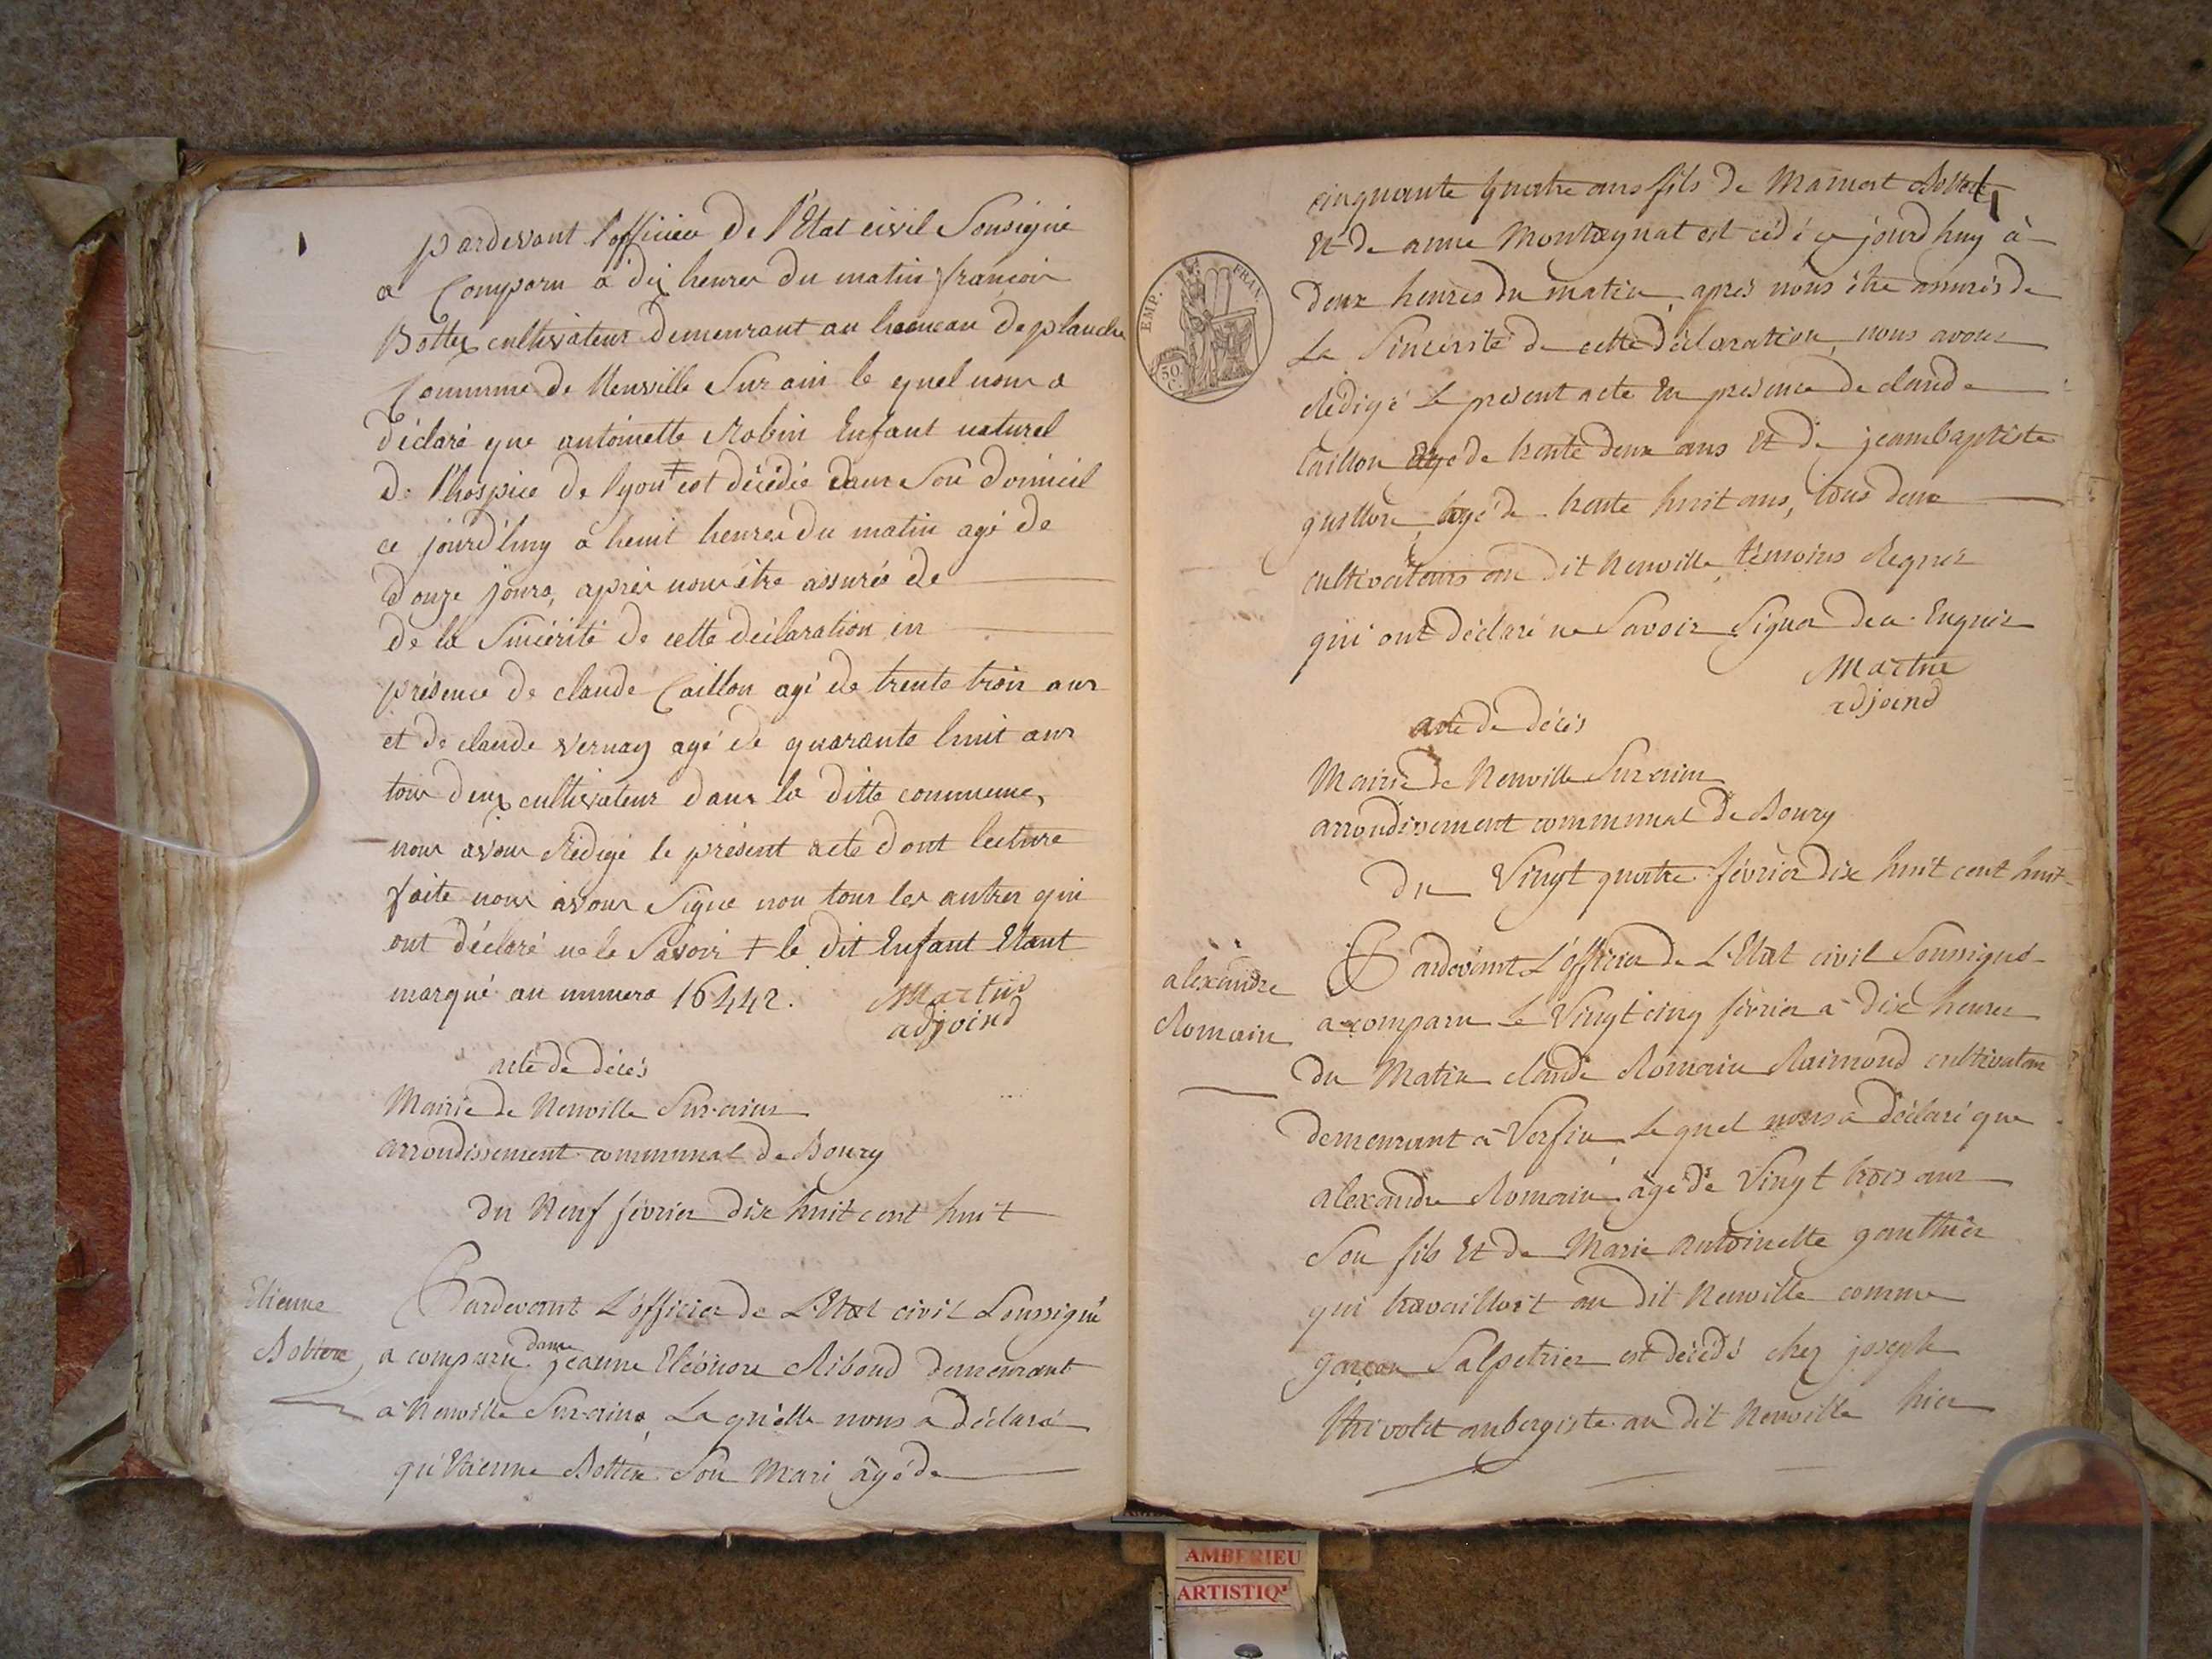 pardevant l'officier de l'Etat civil Sousigné
a Comparu a dix heures du matin françois
Bottex cultivateur demeurant au hameau de planche
Commune de Neuville Sur ain le quel nous a
déclaré que antoinette Robin Enfant naturel
de l'hospice de lyon ‡ est décédée dans Son domicil
ce jourd'huy a heuit heures du matin agé de
douze jours, après nous être assurés de
de la Sincérité de cette déclaration in
présence de claude Caillon agé de trente trois ans
et de claude Vernay agé de quarante huit ans
tous deux cultivateur dans la ditte commeune,
nous avons Rédigé le présent acte dont lecture
faite nous avons Signé non tous les autres qui
ont déclaré ne le Savoir ‡ le dit Enfant Etant
marqué au numero 16442. Martin
adjoind
acte de décès
Mairie de Neuville Sur-ain
arrondissement communal de Bourg
du Neuf février dix huit cent huit
Etienne
Bottex
Pardevant L'officier de L'Etat civil Soussigné
a comparu dame jeanne Eléonore Riboud demeurant
a Neuville Sur-ain, La quelle nous a déclaré
qu'Etienne Bottex Son Mari âgé de
cinquante quatre ans fils de Mamert Bottex
Et de anne Montagnat est cédé ce jourd'huy à
deux heures du matin, apres nous être assurés de
La Sincérité de cette déclaration, nous avons
Rédigé Le present acte En presence de claude
Caillon agé de trente deux ans Et de jeanbaptiste
guillon, agé de trente huit ans, tous deux
cultivateurs au dit Neuville, témoins Requis
qui ont déclaré ne Savoir Signer de ce Enquis
Martin
adjoind
acte de décès
Mairie de Neuville Sur-ain
arrondissement communal de Bourg
du Vingt quatre février dix huit cent huit
EMP. FRAN.
50
C.
alexandre
Romain
Pardevant L'officier de L'Etat civil Soussigné
a comparu Le Vingt cinq février a dix heures
du Matin claude Romain Raimond cultivateur
demeurant a Verfin, Lequel nous a déclaré que
alexandre Romain, âgé de Vingt trois ans
Son fils Et de Marie antoinette gauthier
qui travailloit au dit Neuville comme
garçon Salpetrier est décédé chez joseph
thivolet aubergiste au dit Neuville hier
AMBERIEU
ARTISTIQ